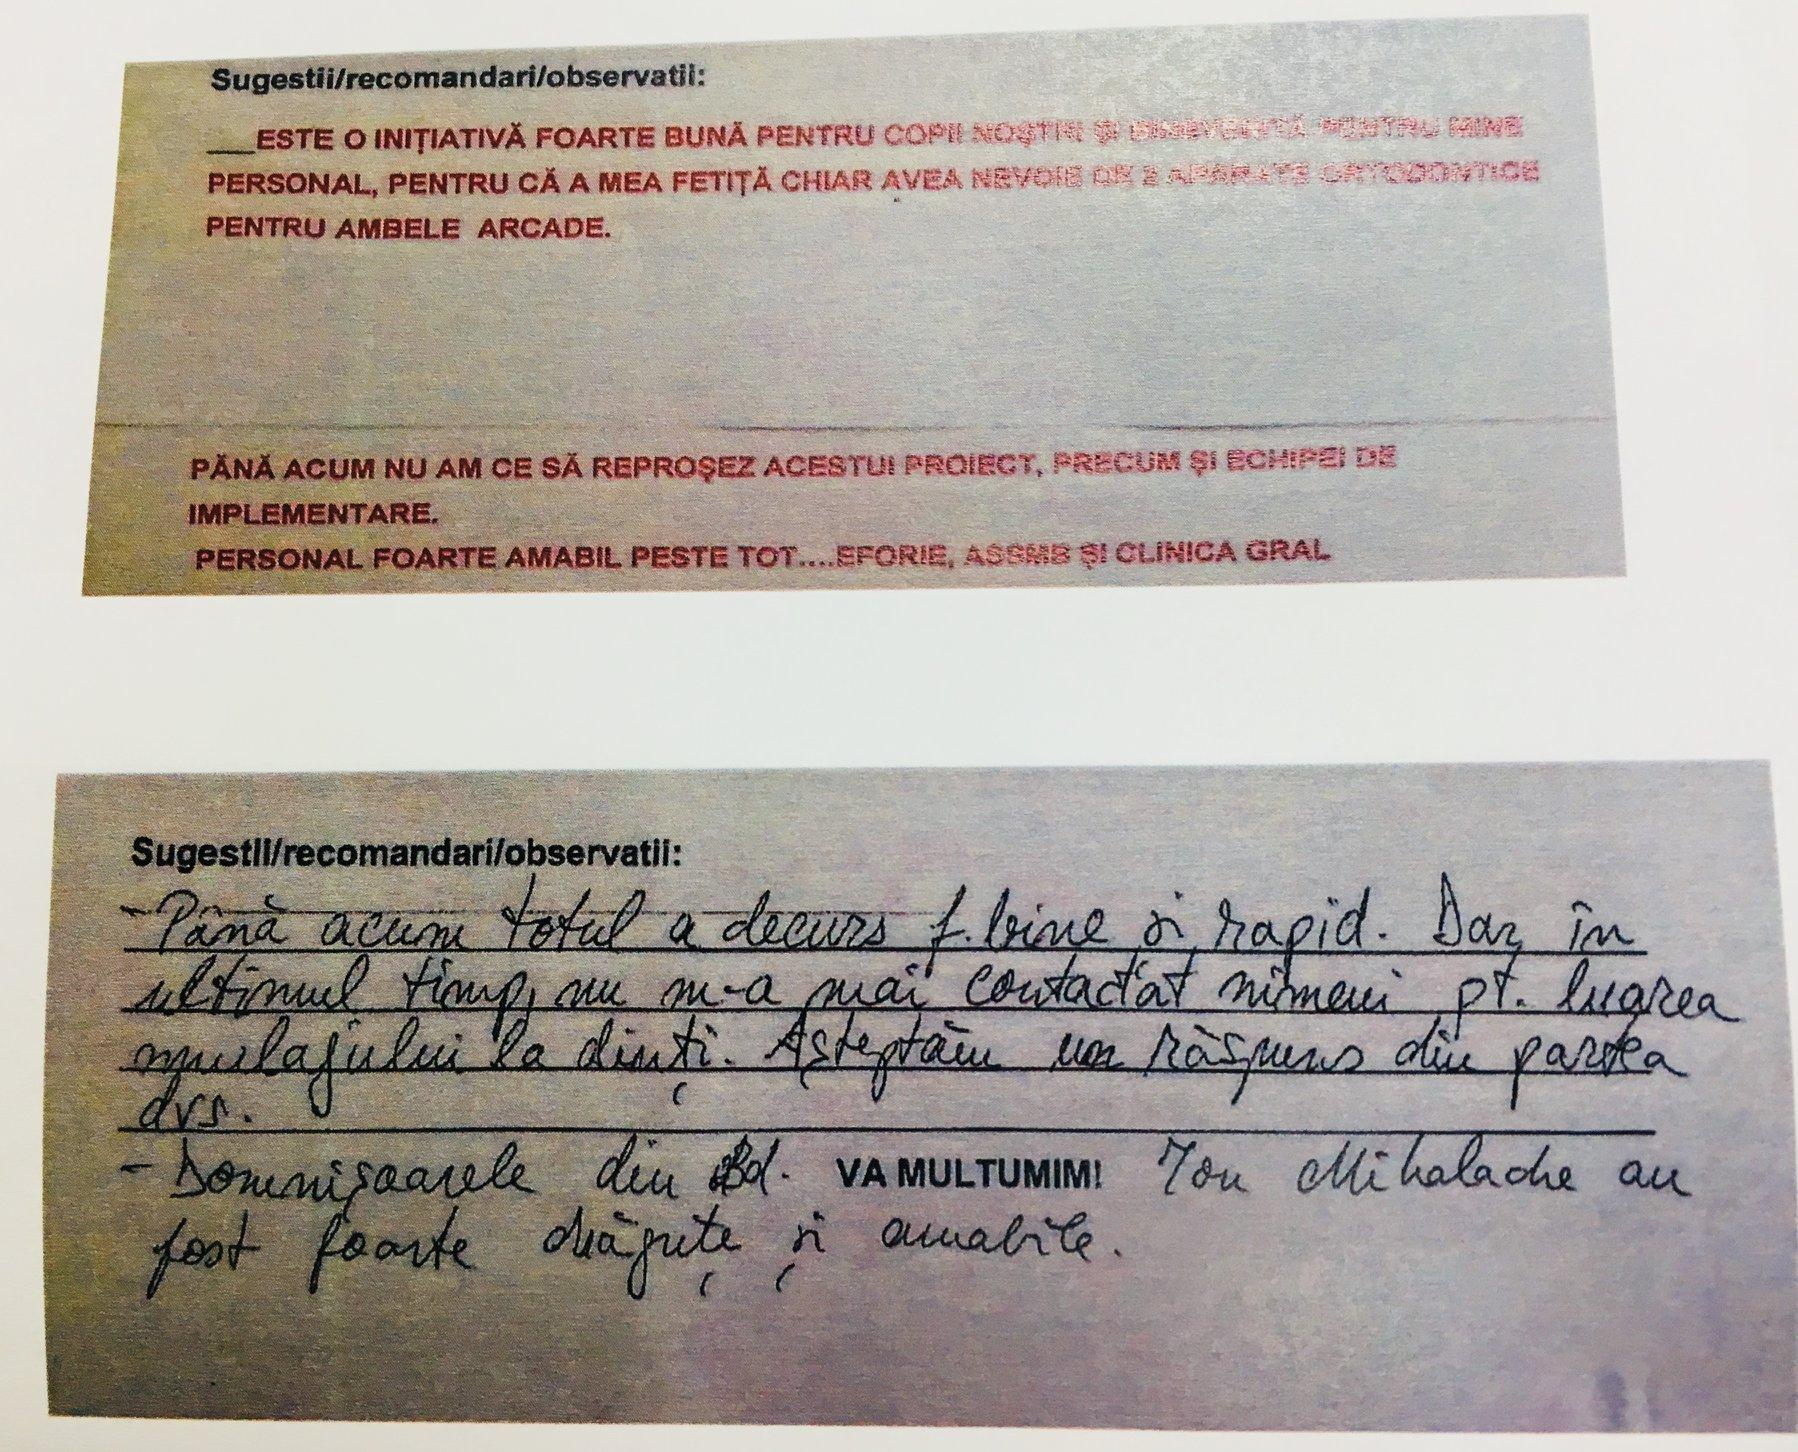 Sugestii/recomandari/observatii:
___ESTE O INIȚIATIVĂ FOARTE BUNĂ PENTRU COPII NOȘTRI ȘI PENTRU MINE
PERSONAL, PENTRU CĂ A MEA FETIȚĂ CHIAR AVEA NEVOIE DE 2 APARATE ORTODONTICE
PENTRU AMBELE ARCADE.
PĂNĂ ACUM NU AM CE SĂ REPROȘEZ ACESTUI PROIECT, PRECUM ȘI ECHIPEI DE
IMPLEMENTARE.
PERSONAL FOARTE AMABIL PESTE TOT....EFORIE, ASSMB ȘI CLINICA GRAL
Sugestii/recomandari/observatii:
- Până acum totul a decurs f. bine și rapid. Dar în
ultimul timp, nu m-a mai contactat nimeni pt. luarea
mulajului la dinți. Așteptăm un răspuns din partea
dvs.
- Domnișoarele din Bd. VA MULTUMIM! Ion Mihalache au
fost foarte drăguțe și amabile.